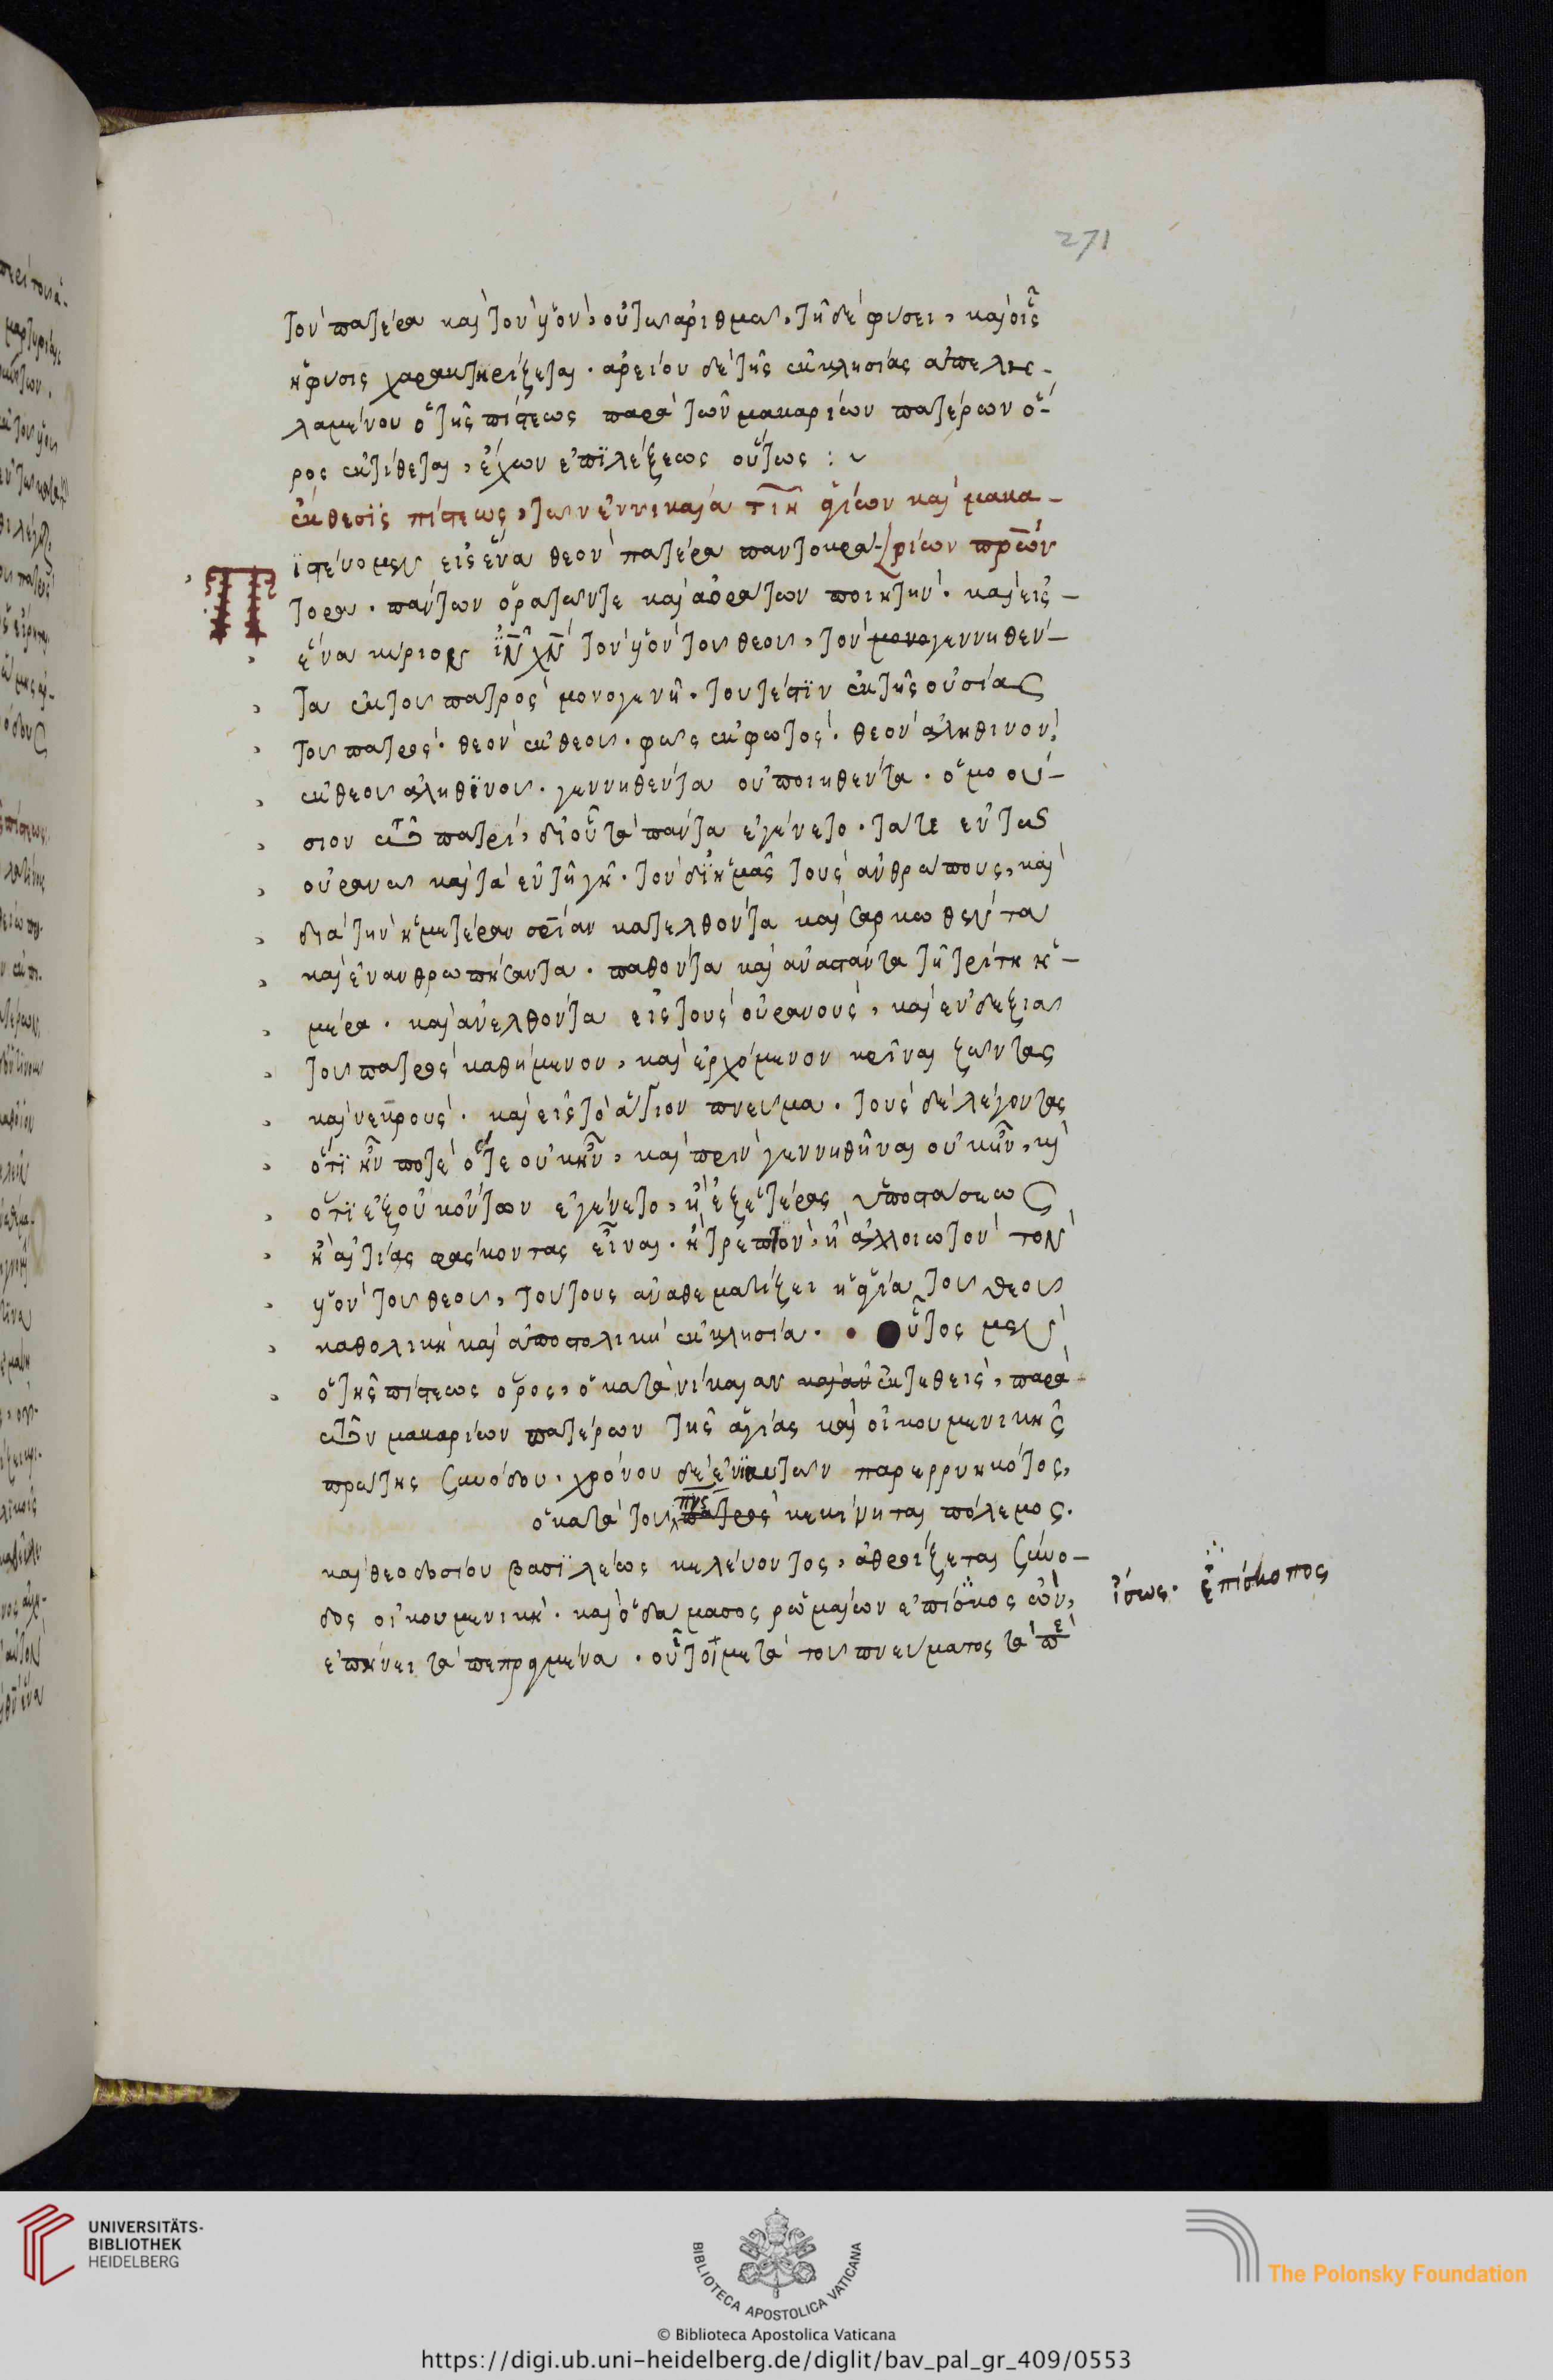 271
τὸν πατέρα καὶ τὸν υἱὸν, οὐ τῶ ἀριθμῶ, τῆ δὲ φύσει, καὶ οἷς
ἡ φύσις χαρακτηρίζεται. ἀρείου δὲ τῆς ἐκκλησίας ἀπελη-
λαμένου ὁ τῆς πίστεως παρὰ τῶν μακαρίων πατέρων ὅ-
ρος ἐκτίθεται, ἔχων ἐπϊλέξεως οὕτως :
ἔκθεσϊς πίστεως, τῶν ἐν νικαία τιη ἁγίων καὶ μακα-
ϊστεύομεν εἰς ἕνα θεὸν πατέρα παντοκρά- ρίων πρων
τορα. πάντων ὁρατῶν τε καὶ ἀοράτων ποιητὴν. καὶ εἰς
ἕνα κύριον ἰν χν τὸν υἱὸν τοῦ θεοῦ, τὸν μονογεννηθέν-
τα ἐκ τοῦ πατρὸς μονογενῆ. τουτέστϊν ἐκ τῆς οὐσίας
τοῦ πατρὸς. θεὸν ἐκ θεοῦ. φῶς ἐκ φωτὸς. θεὸν ἀληθινὸν
ἐκ θεοῦ ἀληθϊνοῦ. γεννηθέντα οὐ ποιηθέντα. ὁμοού-
σιον τῶ πατρὶ, δι οὗ τὰ πάντα ἐγένετο. τά τε ἐν τῶ
οὐρανῶ καὶ τὰ ἐν τῆ γῆ. τὸν δϊ ἡμᾶς τοὺς ἀνθρώπους, καὶ
διὰ τὴν ἡμετέραν σρίαν κατελθόντα καὶ σαρκωθέντα
καὶ ἐνανθρωπήσαντα. παθόντα καὶ ἀναστάντα τῆ τρίτη ἡ-
μέρα. καὶ ἀνελθόντα εἰς τοὺς οὐρανοὺς, καὶ ἐν δεξιᾶ
τοῦ πατρὸς καθήμενον, καὶ ἐρχόμενον κρῖναι ζῶντας
καὶ νεκροὺς. καὶ εἰς τὸ ἅγιον πνεῦμα. τοὺς δὲ λέγοντας
ὅτϊ ἦν ποτὲ ὅτε οὐκ ἦν, καὶ πρὶν γεννηθῆναι οὐκ ἦν, καὶ
ὅτϊ ἐξ οὐκ ὄντων ἐγένετο, ἢ ἐξ ἑτέρας ὑποστάσεως
ἢ αἰτίας φάσκοντας εἶναι. ἢ τρεπτὸν, ἢ ἀλλοιωτὸν τὸν
υἱὸν τοῦ θεοῦ, τούτους ἀναθεματίζει ἡ ἁγία τοῦ θεοῦ
καθολικὴ καὶ ἀποστολικὴ ἐκκλησία. οὗτος μὲν
ὁ τῆς πίστεως ὅρος, ὁ κατὰ νίκαιαν ἐκτεθεὶς, παρὰ
τῶν μακαρίων πατέρων τῆς ἁγίας καὶ οἰκουμενικῆς
πρώτης συνόδου. χρόνου δὲ ἐνιαυτῶν παρερρυηκότος,
ὁ κατὰ τοῦ πνς πατρὸς κεκίνηται πόλεμος.
καὶ θεοδοσίου βασϊλέως κελεύοντος, ἀθροίζεται σύνο-
δος οἰκουμενικὴ. καὶ ὁ δάμασος ῥωμαίων ἐπίσκος ὢν,
ἴσως. ἐπίσκοπος
ἐπήνει τὰ πεπραγμένα. οὗτοι μετὰ τοῦ πνεύματος τὰ
UNIVERSITÄTS-
BIBLIOTHEK
HEIDELBERG
BIBLIOTECA APOSTOLICA VATICANA
The Polonsky Foundation
© Biblioteca Apostolica Vaticana
https://digi.ub.uni-heidelberg.de/diglit/bav_pal_gr_409/0553